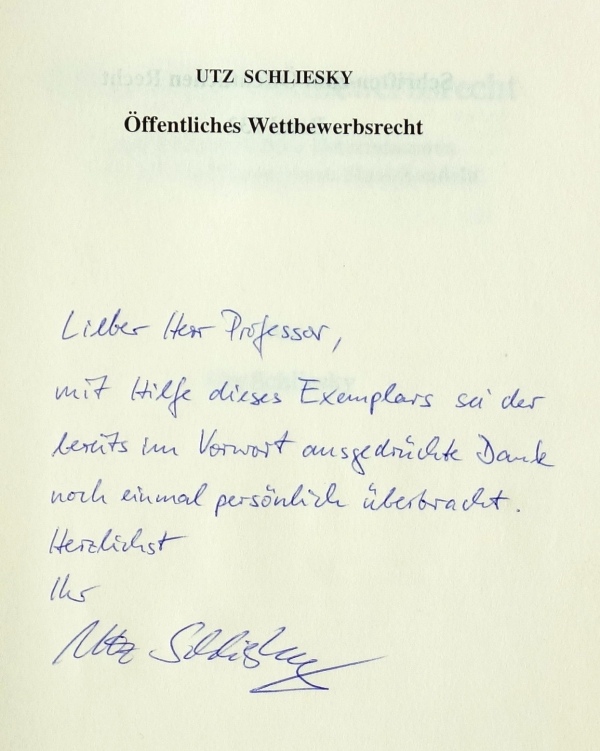 UTZ SCHLIESKY
Öffentliches Wettbewerbsrecht
Lieber Herr Professor,
mit Hilfe dieses Exemplars sei der
bereits im Vorwort ausgedrückte Dank
noch einmal persönlich überbracht.
Herzlichst
Ihr
Utz Schliesky